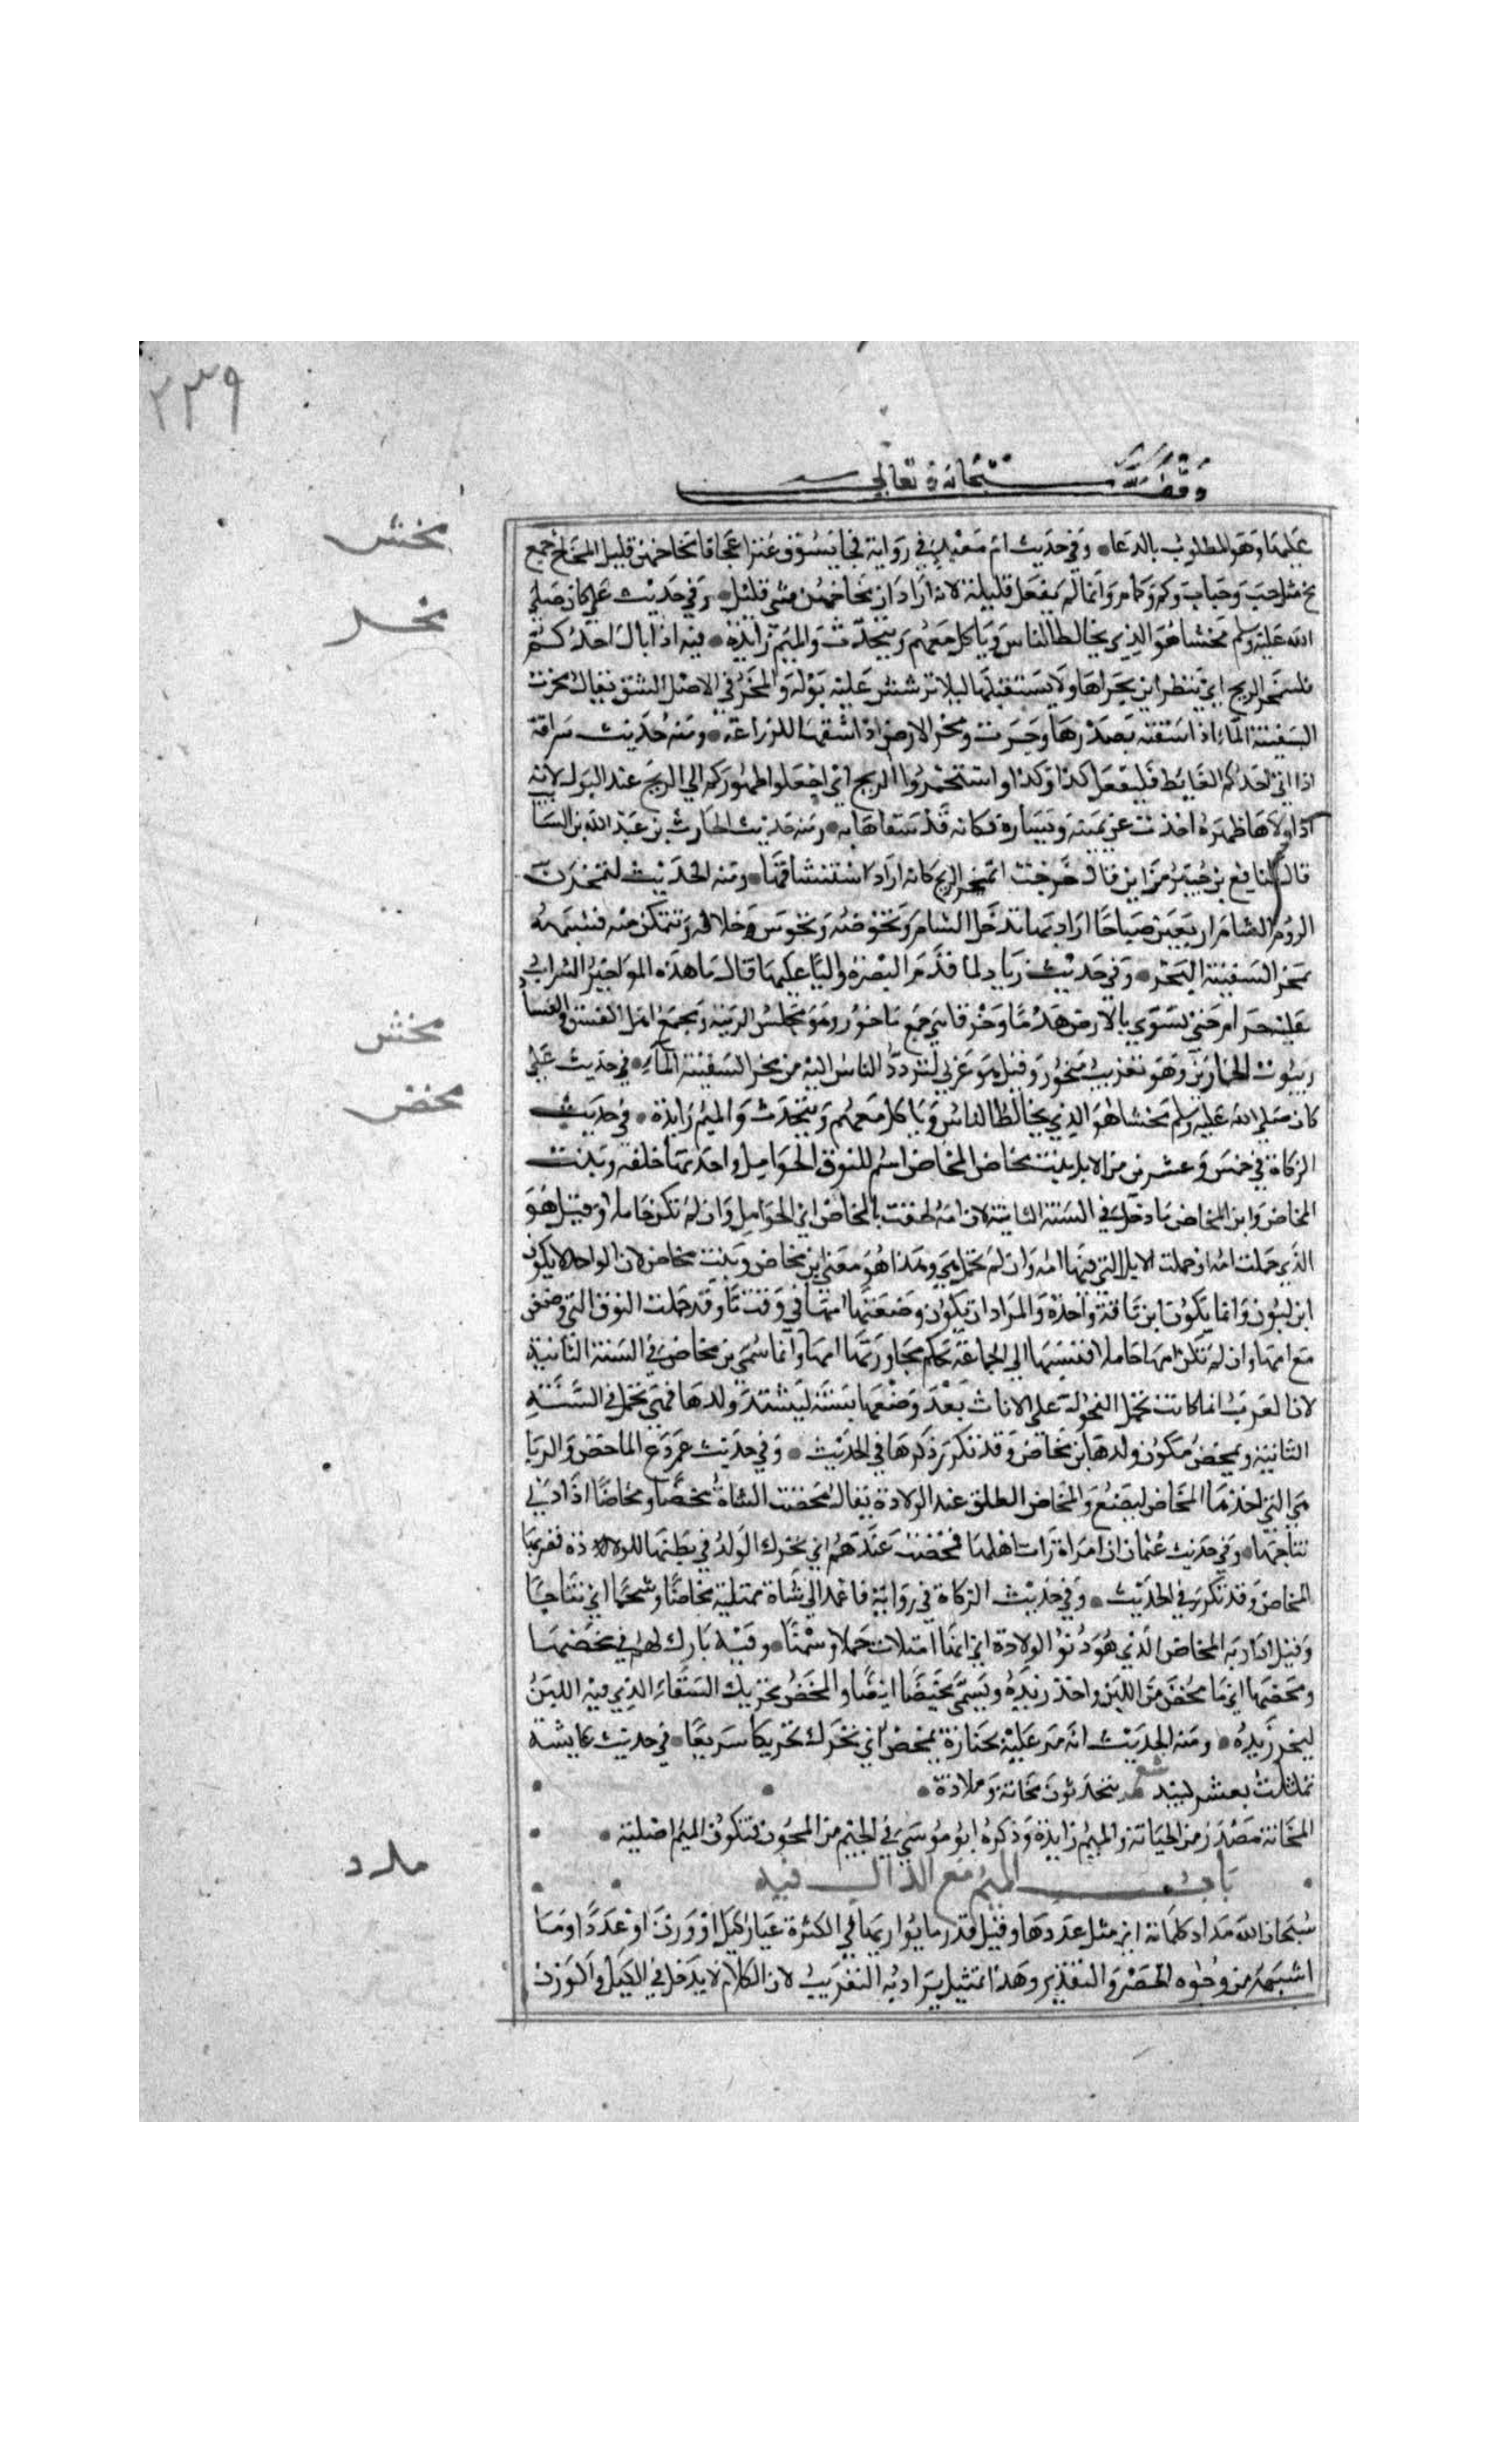 ٢٣٩
وقف لله سبحانه وتعالى
عليها وهو المطلوب بالدعا وفي حديث ام معبد في رواية فجا يسوق عنزا عجافا مخاخهن قليل المخاخ جمع
مخ مثل حب وحباب وكم وكمام وانما لم يقل قليلة لانه اراد ان مخاخهن شي قليل وفي حديث علي كان صلي
الله عليه وسلم مخشا هو الذي يخالط الناس وياكل معهم ويتحدث والميم زايدة فيه اذا بال احدكم
فليتمخر الريح اي ينظر اين مجراها ولا يستقبلها ليلا ترشش عليه بوله والمخر في الاصل الشق يقال مخرت
السفينة الماء اذا شقته بصدرها وجرت ومخر الارض اذا شقها للزراعة ومنه حديث سراقة
اذا اتي احدكم الغايط فليفعل كذا وكذا واستمخروا الريح اي اجعلوا ظهوركم الي الريح عند البول لانه
اذا ولاها ظهره اخذت عن يمينه ويساره فكانه قد شقها به ومنه حديث الحارث بن عبد الله بن السا
قال لنافع بن جبير من اين قال خرجت اتمخر الريح كانه اراد استنشاقها ومنه الحديث لتمخرن
الروم الشام اربعين صباحا اراد انها تدخل الشام وتخوضه وتجوس خلاله وتتمكن منه فشبهه
بمخر السفينة البحر وفي حديث زياد لما قدم البصرة واليا عليها قال ما هذه المواخير الشراب
عليه حرام حتي تسوي بالارض هدما وحرقا هي جمع ماخور وهو مجلس الريبة ومجمع اهل الفسق والفساد
وبيوت الخمارين وهو تعريب ميخور وقيل هو عربي لتردد الناس اليه من مخر السفينة الماء في حديث علي
كان صلي الله عليه وسلم مخشا هو الذي يخالط الناس وياكل معهم ويتحدث والميم زايدة في حديث
الزكاة في خمس وعشرين من الابل بنت مخاض المخاض اسم للنوق الحوامل واحدتها خلفه وبنت
المخاض وابن المخاض ما دخل في السنة الثانية لان امه لحقت بالمخاض اي الحوامل وان لم تكن حاملا وقيل هو
الذي حملت امه او حملت الابل التي فيها امه وان لم تحمل هي وهذا هو معني ابن مخاض وبنت مخاض لان الواحد لا يكون
ابن لبون وانما يكون ابن ناقة واحدة والمراد ان يكون وضعتها امها في وقت ما وقد حملت النوق التي وضعن
مع امها وان لم تكن امها حاملا فنسبها الي الجماعة بحكم مجاورتها امها وانما سمي بن مخاض في السنة الثانية
لان العرب انما كانت تحمل الفحولة علي الاناث بعد وضعها بسنة ليشتد ولدها فهي تحمل في السنة
الثانية وتمخض فيكون ولدها ابن مخاض وقد تكرر ذكرها في الحديث وفي حديث عمر دع الماخض والربا
هي التي اخذها المخاض لتضع والمخاض الطلق عند الولادة يقال مخضت الشاة مخضا ومخاضا اذا دني
نتاجها وفي حديث عثمان ان امراة زارت اهلها فمخضت عندهم اي تحرك الولد في بطنها للولادة فضربها
المخاض وقد تكرر في الحديث وفي حديث الزكاة في رواية فاعمد الي شاة ممتلية مخاضا وشحما اي نتاجا
وقيل اراد به المخاض الذي هو دنو الولادة اي انها امتلات حملا وسمنا وفيه بارك لهم في محضها
ومخضها اي ما مخض من اللبن واخذ زبده ويسمي مخيضا ايضا والمخض تحريك السقاء الذي فيه اللبن
ليخرج زبده ومنه الحديث انه مر عليه بجنازة تمخض اي تحرك تحريكا سريعا في حديث عايشة
تمثلت بشعر لبيد يتحدثون مخانة وملاذة
المخانة مصدر من الخيانة والميم زايدة وذكره ابو موسي في الجيم من المجون فتكون الميم اصلية
باب الميم مع الدال فيه
سبحان الله مداد كلماته اي مثل عددها وقيل قدر ما يوازيها في الكثرة عيار كيل او وزن او عدد او ما
اشبهه من وجوه الحصر والتقدير وهذا تمثيل يراد به التقريب لان الكلام لا يدخل في الكيل والوزن
مخش
مخر
مخش
مخض
مدد